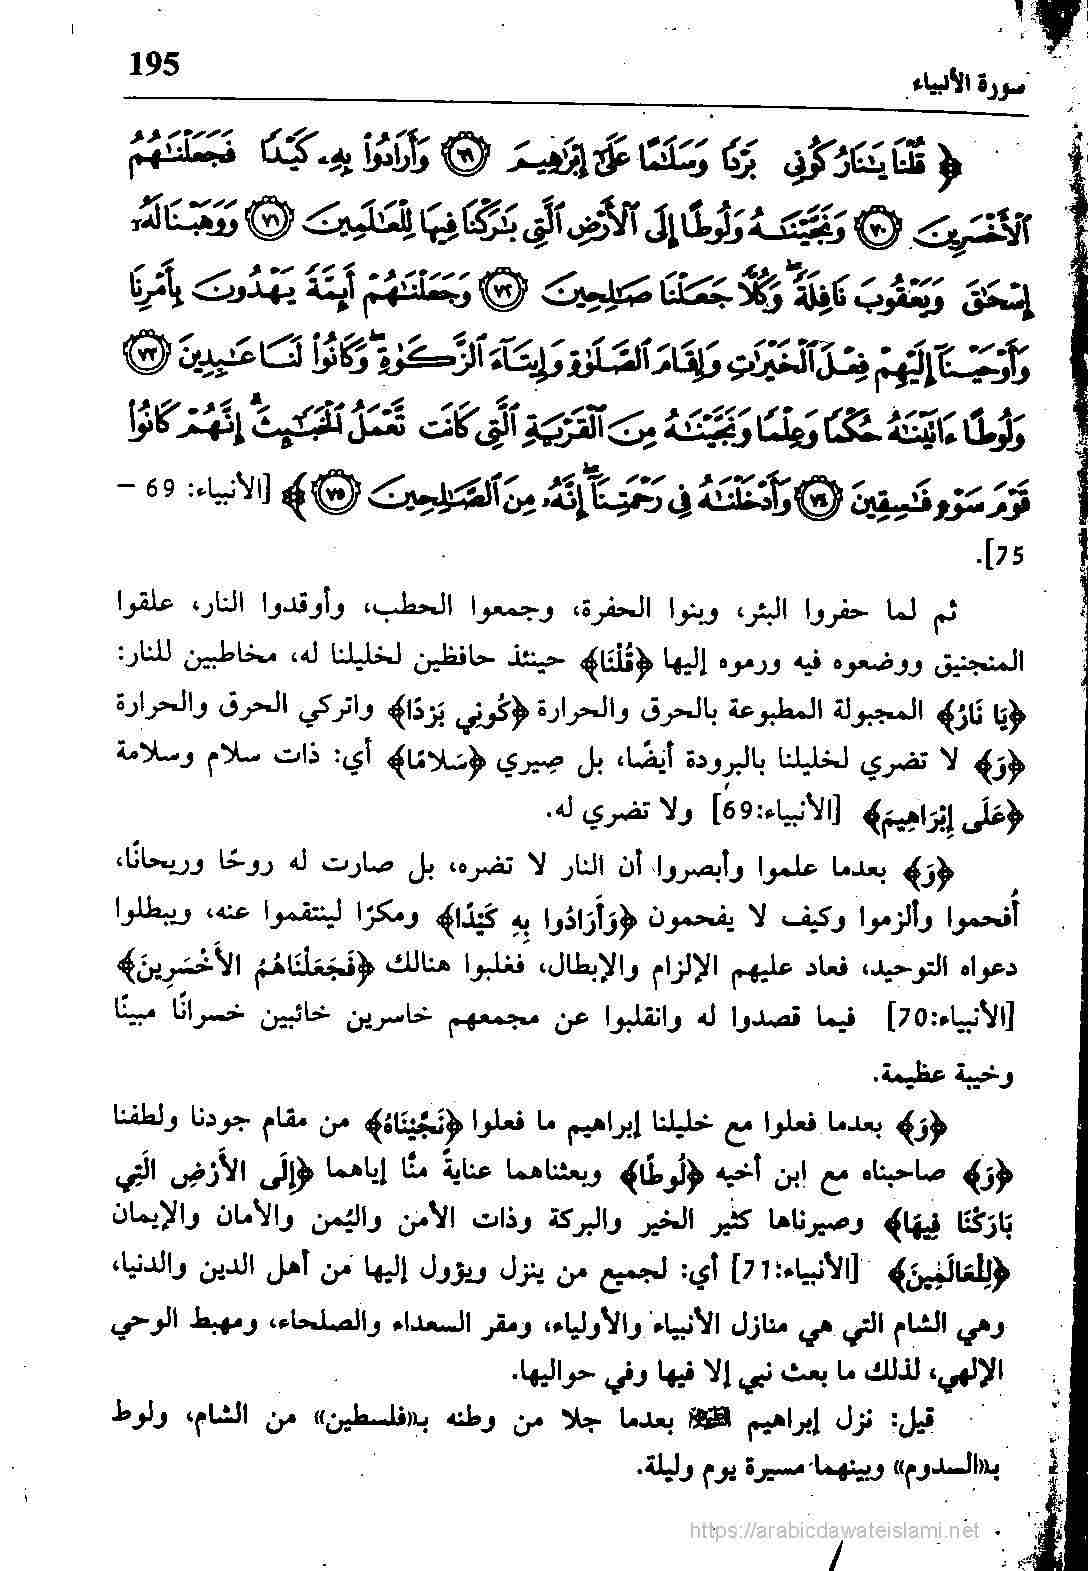 195
سورة الأنبياء
﴿ قُلْنَا يَٰنَارُ كُونِى بَرْدًا وَسَلَٰمًا عَلَىٰٓ إِبْرَٰهِيمَ ٦٩ وَأَرَادُوا۟ بِهِۦ كَيْدًا فَجَعَلْنَٰهُمُ
ٱلْأَخْسَرِينَ ٧٠ وَنَجَّيْنَٰهُ وَلُوطًا إِلَى ٱلْأَرْضِ ٱلَّتِى بَٰرَكْنَا فِيهَا لِلْعَٰلَمِينَ ٧١ وَوَهَبْنَا لَهُۥٓ
إِسْحَٰقَ وَيَعْقُوبَ نَافِلَةً ۖ وَكُلًّا جَعَلْنَا صَٰلِحِينَ ٧٢ وَجَعَلْنَٰهُمْ أَئِمَّةً يَهْدُونَ بِأَمْرِنَا
وَأَوْحَيْنَآ إِلَيْهِمْ فِعْلَ ٱلْخَيْرَٰتِ وَإِقَامَ ٱلصَّلَوٰةِ وَإِيتَآءَ ٱلزَّكَوٰةِ ۖ وَكَانُوا۟ لَنَا عَٰبِدِينَ ٧٣
وَلُوطًا ءَاتَيْنَٰهُ حُكْمًا وَعِلْمًا وَنَجَّيْنَٰهُ مِنَ ٱلْقَرْيَةِ ٱلَّتِى كَانَت تَّعْمَلُ ٱلْخَبَٰٓئِثَ ۗ إِنَّهُمْ كَانُوا۟
قَوْمَ سَوْءٍ فَٰسِقِينَ ٧٤ وَأَدْخَلْنَٰهُ فِى رَحْمَتِنَآ ۖ إِنَّهُۥ مِنَ ٱلصَّٰلِحِينَ ٧٥ ﴾ [الأنبياء: 69 –
75].
ثم لما حفروا البئر، وبنوا الحفرة، وجمعوا الحطب، وأوقدوا النار، علقوا
المنجنيق ووضعوه فيه ورموه إليها ﴿قُلْنَا﴾ حينئذ حافظين لخليلنا له، مخاطبين للنار:
﴿يَا نَارُ﴾ المجبولة المطبوعة بالحرق والحرارة ﴿كُونِي بَرْدًا﴾ واتركي الحرق والحرارة
﴿وَ﴾ لا تضري لخليلنا بالبرودة أيضًا، بل صِيري ﴿سَلامًا﴾ أي: ذات سلام وسلامة
﴿عَلَى إِبْرَاهِيمَ﴾ [الأنبياء:69] ولا تضري له.
﴿وَ﴾ بعدما علموا وأبصروا أن النار لا تضره، بل صارت له روحًا وريحانًا،
أُفحموا وأُلزموا وكيف لا يفحمون ﴿وَأَرَادُوا بِهِ كَيْدًا﴾ ومكرًا لينتقموا عنه، ويبطلوا
دعواه التوحيد، فعاد عليهم الإلزام والإبطال، فغلبوا هنالك ﴿فَجَعَلْنَاهُمُ الأَخْسَرِينَ﴾
[الأنبياء:70] فيما قصدوا له وانقلبوا عن مجمعهم خاسرين خائبين خسرانًا مبينًا
وخيبة عظيمة.
﴿وَ﴾ بعدما فعلوا مع خليلنا إبراهيم ما فعلوا ﴿نَجَّيْنَاهُ﴾ من مقام جودنا ولطفنا
﴿وَ﴾ صاحبناه مع ابن أخيه ﴿لُوطًا﴾ وبعثناهما عنايةً منَّا إياهما ﴿إِلَى الأَرْضِ الَتِي
بَارَكْنَا فِيهَا﴾ وصيرناها كثير الخير والبركة وذات الأمن واليُمن والأمان والإيمان
﴿لِلْعَالَمِينَ﴾ [الأنبياء:71] أي: لجميع من ينزل ويؤول إليها من أهل الدين والدنيا،
وهي الشام التي هي منازل الأنبياء والأولياء، ومقر السعداء والصلحاء، ومهبط الوحي
الإلهي، لذلك ما بعث نبي إلا فيها وفي حواليها.
قيل: نزل إبراهيم بعدما جلا من وطنه بـ«فلسطين» من الشام، ولوط
بـ«السدوم» وبينهما مسيرة يوم وليلة.
https://arabicdawateislami.net